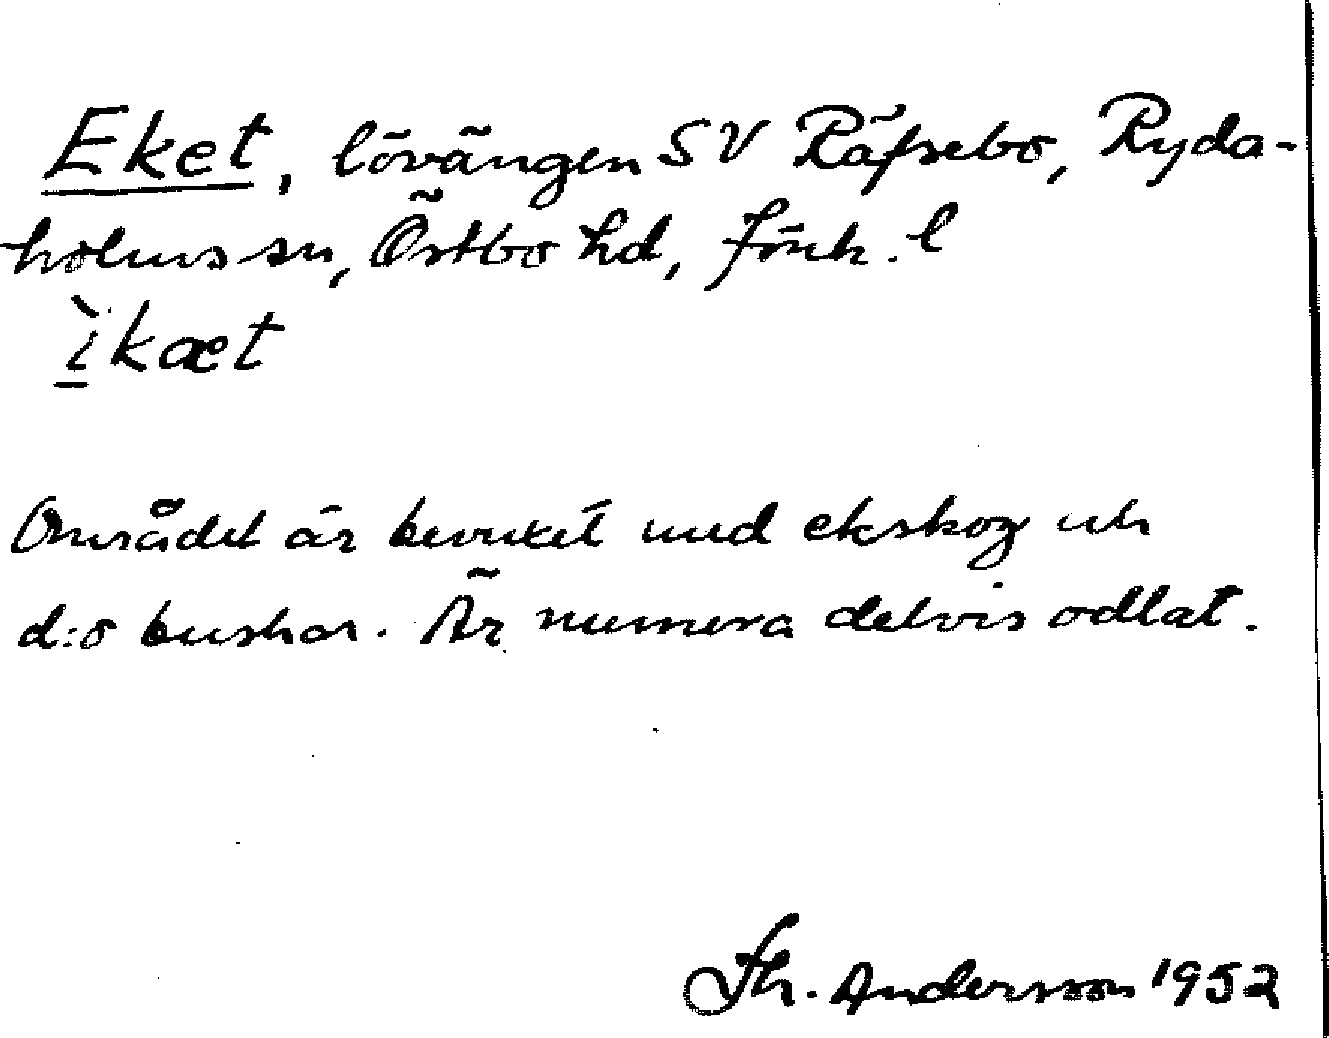 Eket, lövängen SV Räfsebo, Ryda-
holms sn, Östbo hd, Jönk. l
ìkæt
Området är bevuxet med ekskog och
d:o buskar. Är numera delvis odlat.
Th. Andersson 1952